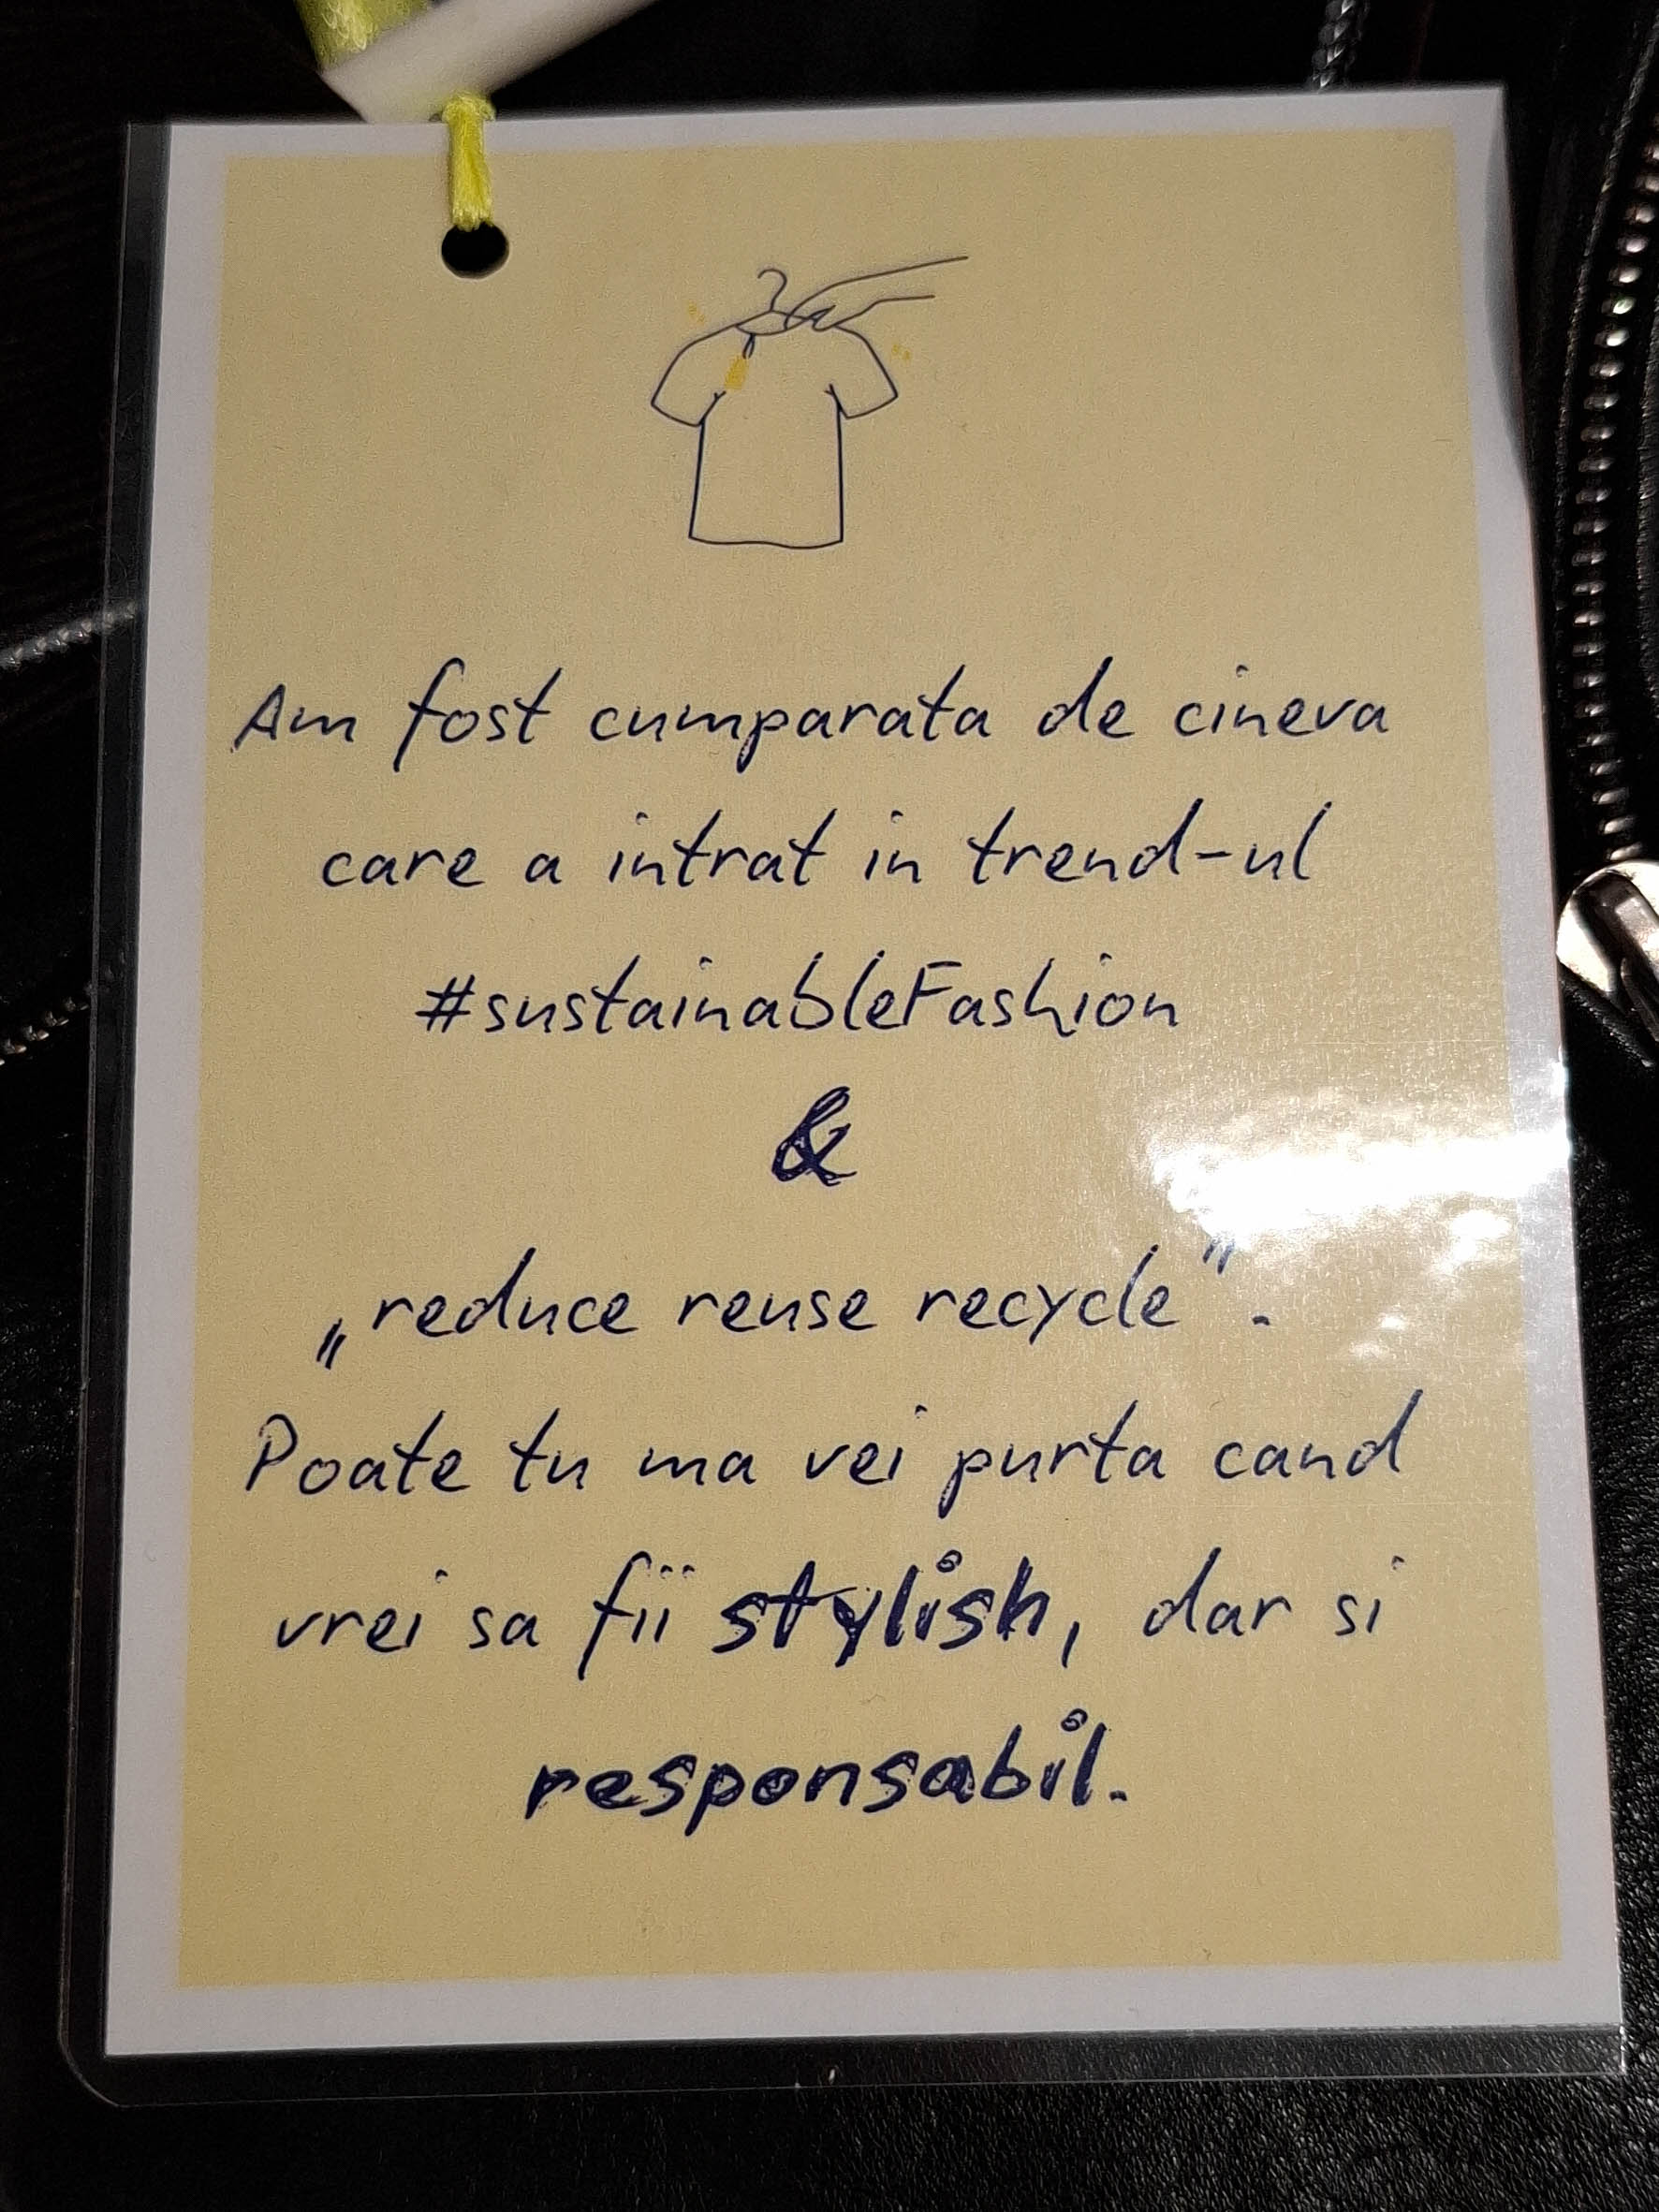 Am fost cumparata de cineva
care a intrat in trend-ul
#sustainableFashion
&
„reduce reuse recycle".
Poate tu ma vei purta cand
vrei sa fii stylish, dar si
responsabil.